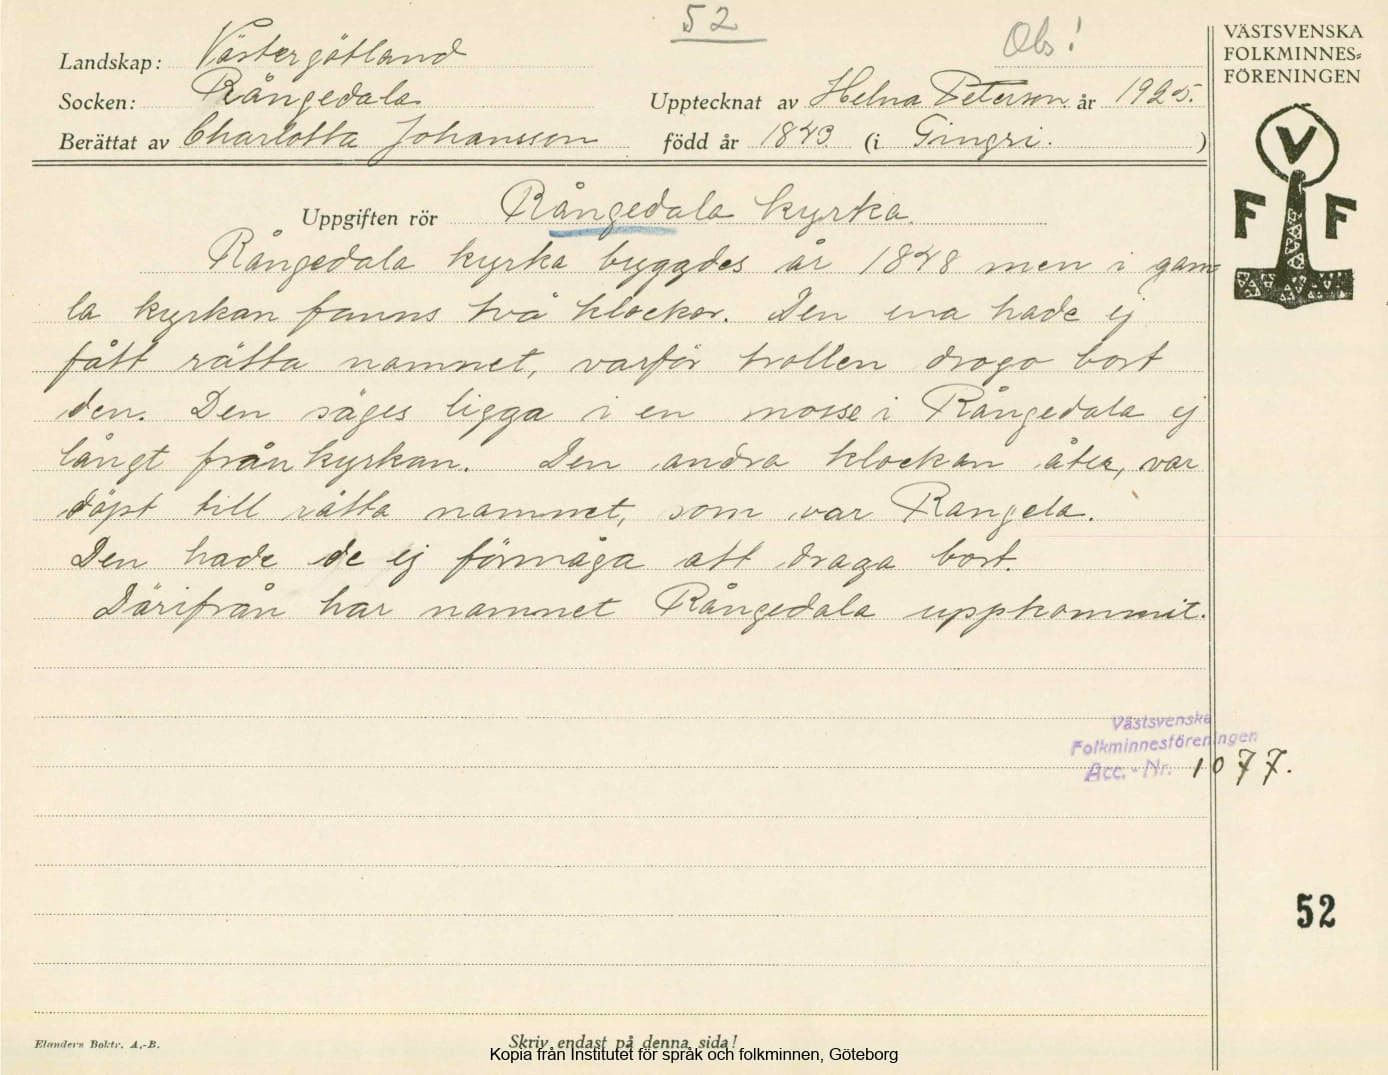 52
Obs!
VÄSTSVENSKA
FOLKMINNES=
FÖRENINGEN
V
F F
Landskap: Västergötland
Socken: Rångedala Upptecknat av Helna Peterson år 1925.
Berättat av Charlotta Johansson född år 1843 (i Gingri. )
Uppgiften rör Rångedala kyrka.
Rångedala kyrka byggdes år 1848 men i gam=
la kyrkan fanns två klockor. Den ena hade ej
fått rätta namnet, varför trollen drogo bort
den. Den säges ligga i en mosse i Rångedala ej
långt från kyrkan. Den andra klockan åter, var
döpt till rätta namnet, som var Rangela.
Den hade de ej förmåga att draga bort.
Därifrån har namnet Rångedala uppkommit.
Västsvenska
Folkminnesföreningen
Acc. - Nr. 1077.
52
Elanders Boktr. A.-B.
Skriv endast på denna sida!
Kopia från Institutet för språk och folkminnen, Göteborg